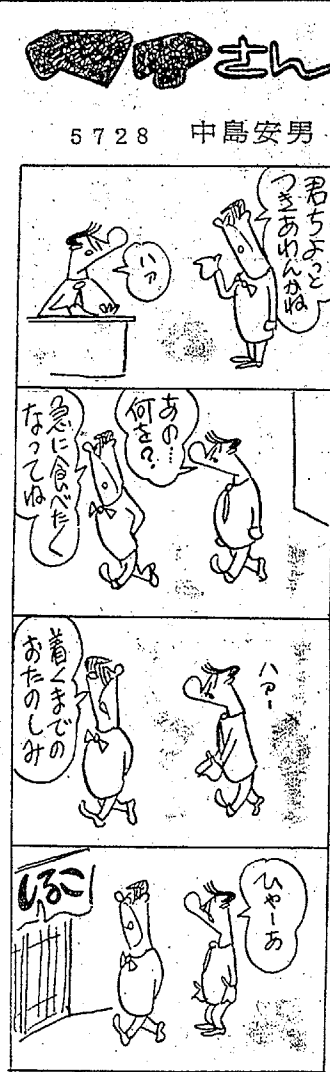 さん
5728 中島安男
君ちょっと
つきあわんかね
ハァ
あの…
何を?
急に食べたく
なってね
ハァー
着くまでの
おたのしみ
ひゃーあ
しるこ